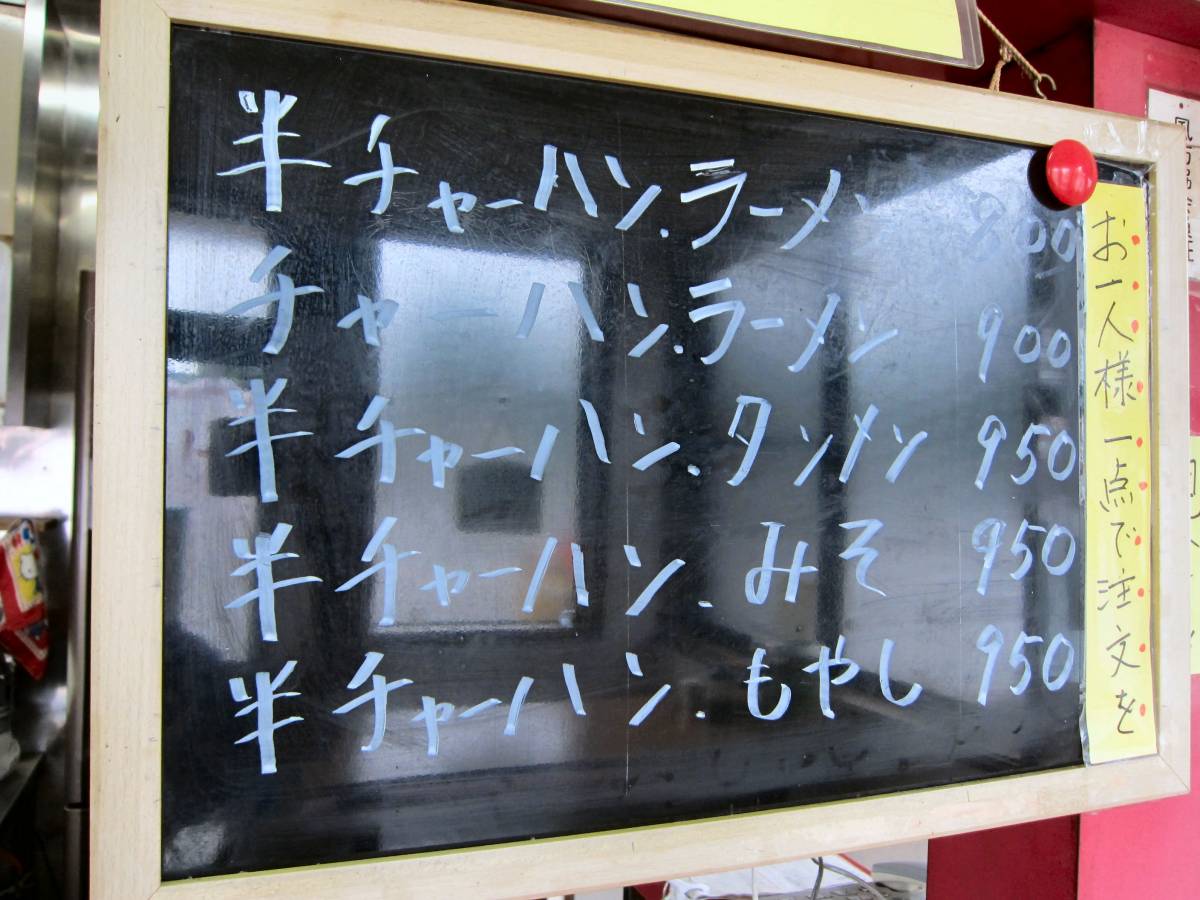 半チャーハン.ラーメン 800
チャーハン.ラーメン 900
半チャーハン.タンメン 950
半チャーハン.みそ 950
半チャーハン.もやし 950
お一人様一点で注文を